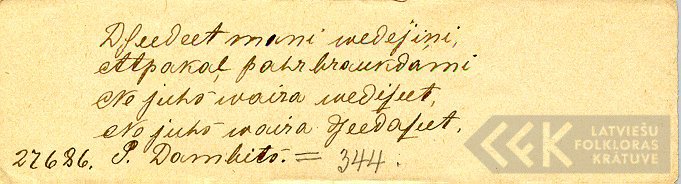 Dseedeet mani wedejini,
Atpakaļ pahrbraukdami
No juhs waira wedīseet,
No juhs waira dseedaseet.
27686. P. Dambits. = 344.
LATVIEŠU
FOLKLORAS
KRĀTUVE